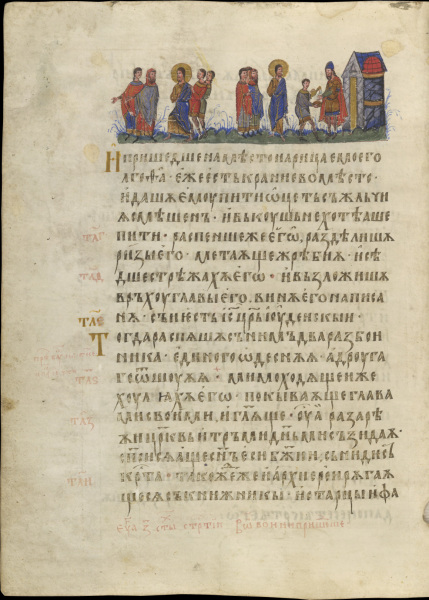 Ипришедшенамѣстонарицаемоего
лгоѳа · ежеестькраниевомѣсто ·
идашѧемоупитиѡцетьсъжлъчи
ѫсмѣшенъ · ивъкоушьнехотѣаше
т҃лг
пити · распеншежеегѡ, раздѣлишѧ
ризыего · метаѫщежрѣбиѧ · исѣ
т҃лд
дшестрѣжахѫего · ивъзложишѧ
връхоуглавыего, винѫегонаписа
т҃ле
нѫ · сънестьі҃с ц҃рьіоуденскыи ·
Тогдараспѧшѧсънимьдваразбои
ника · единогоѡдеснѫѧ · адроуга
т҃лѕ
гоѡшоуѫѧ · мимоходѧщеиже
хоулѣахѫего · покываѫщеглава
т҃лз
мисвоими, игл҃ѧще · оуаразарѣ
жицр҃квьитръмидн҃ьмисъзидаѧ ·
сп҃исѧащесн҃ъесибж҃ии, сънидисъ
т҃ли
кр҃та · такождежеиархиереирѫгаѫ
щесѧсъкнижникы · истарцыифа